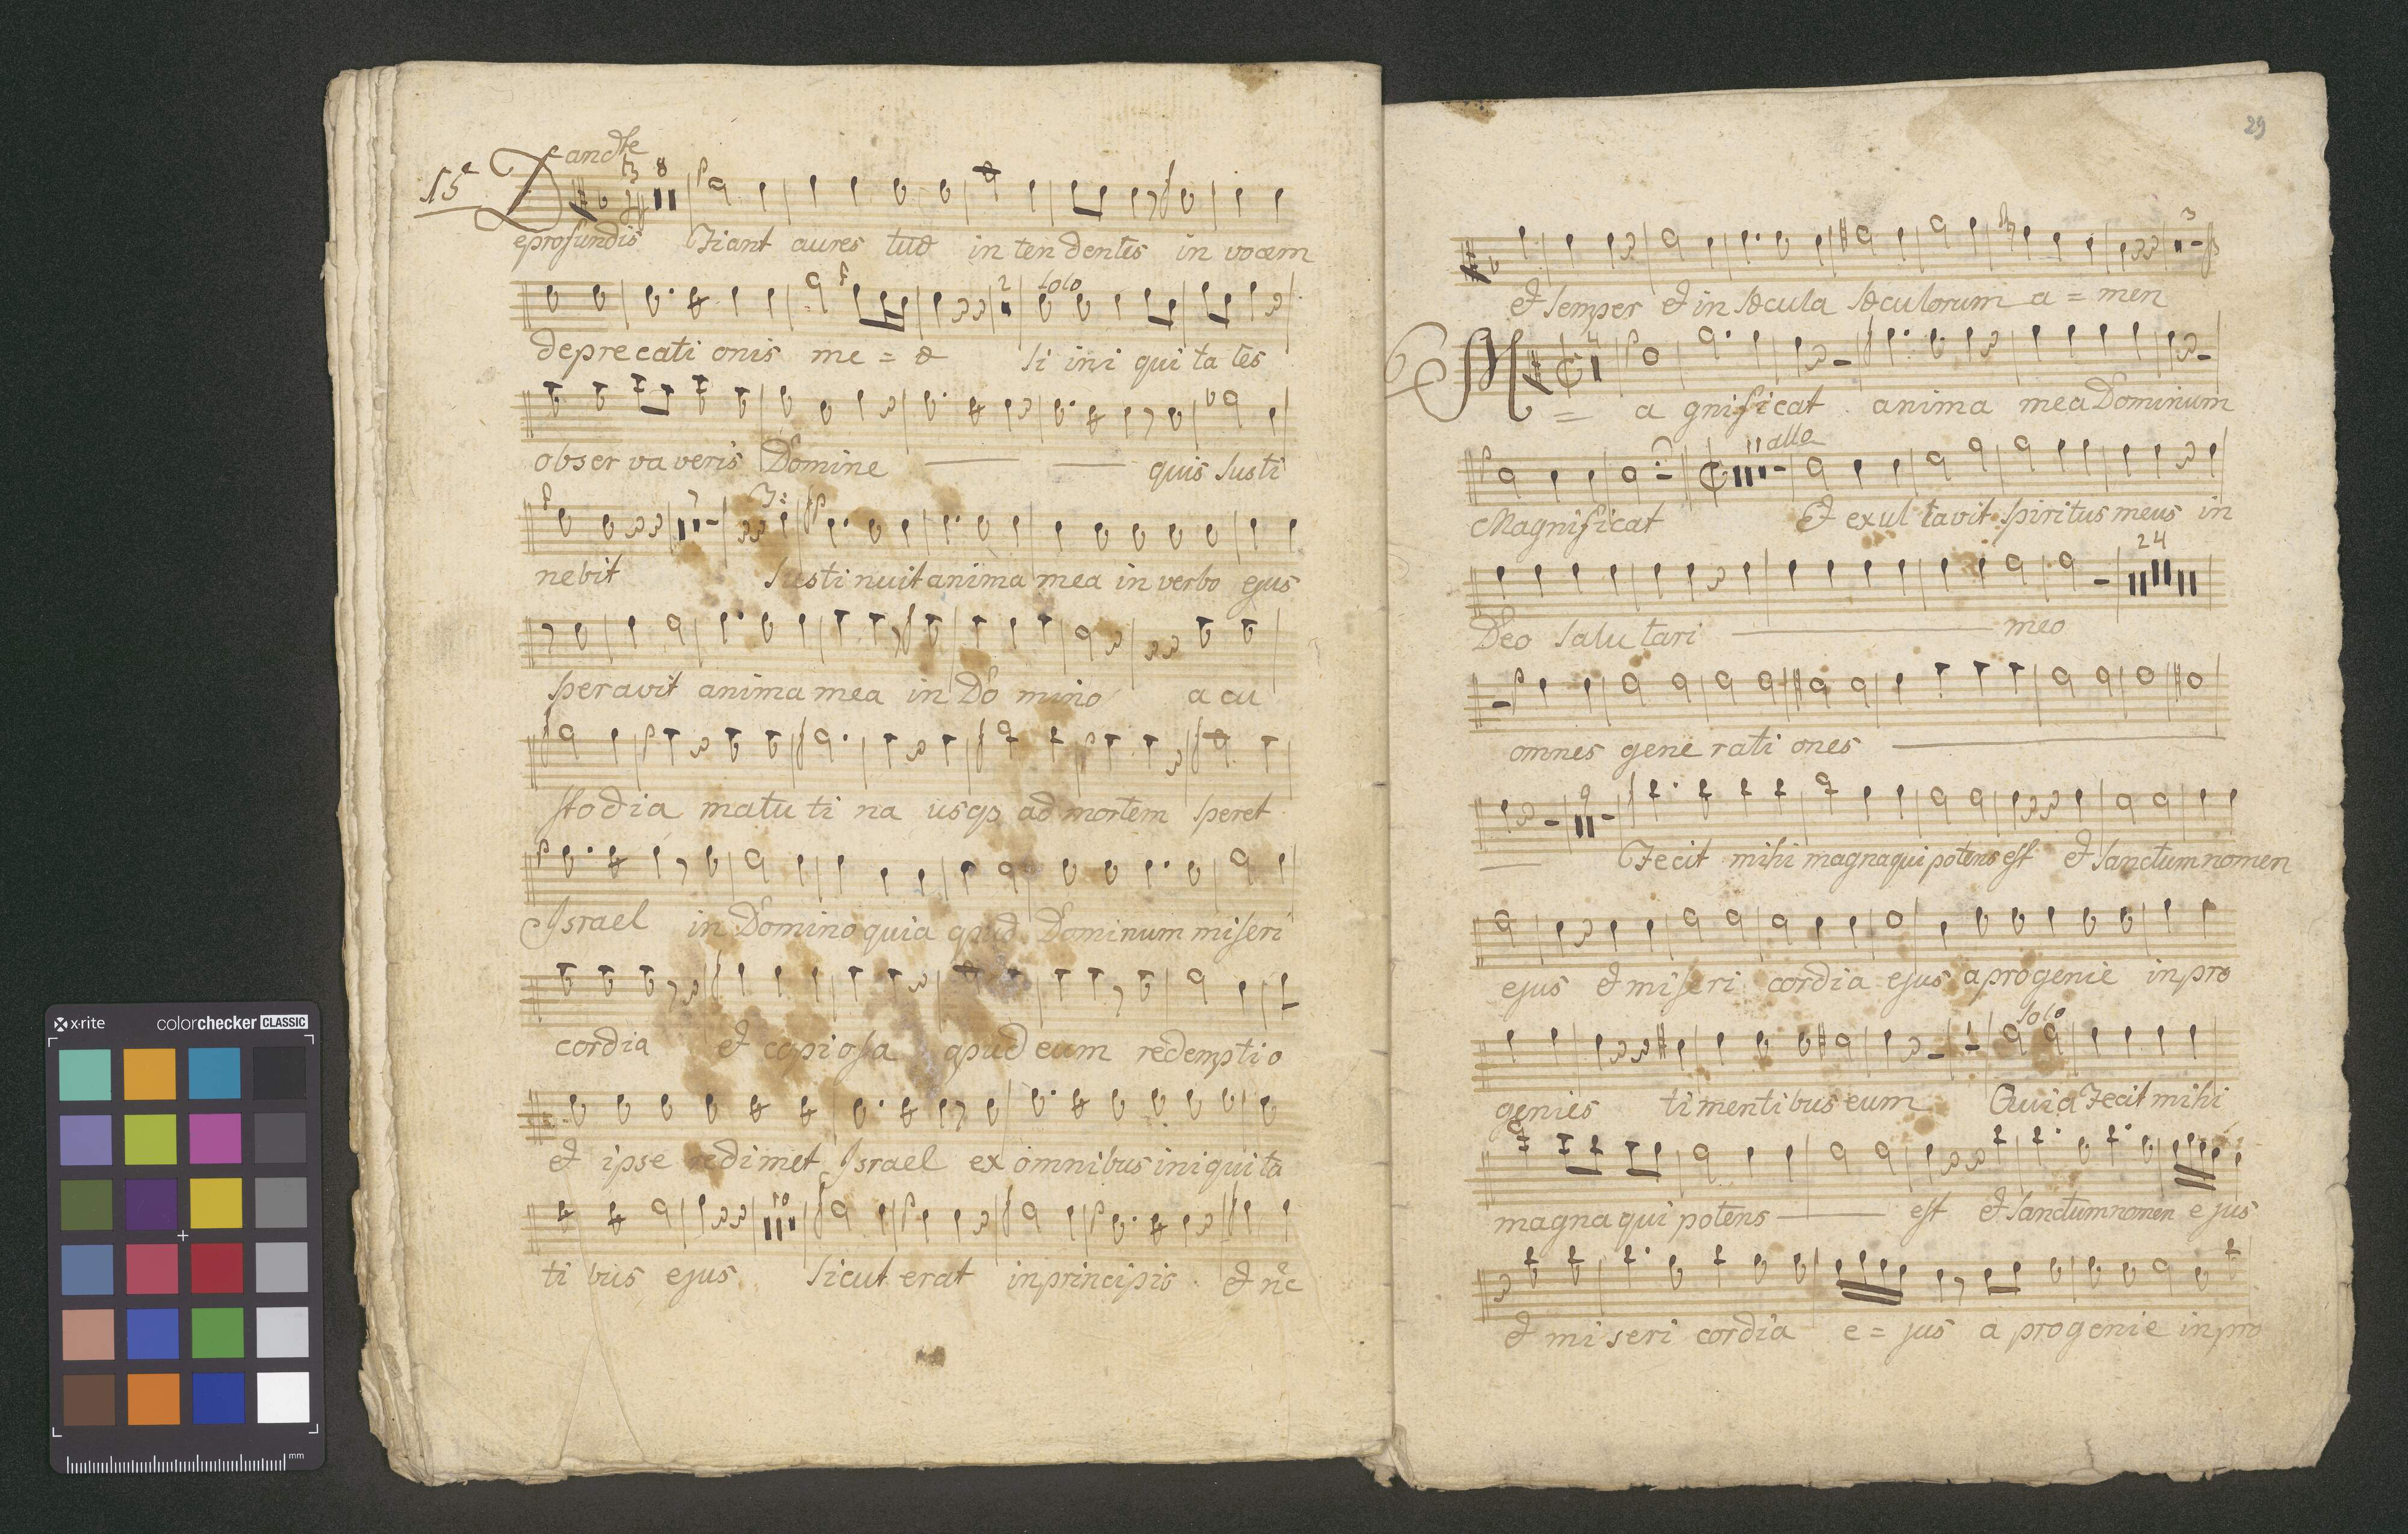 x-rite colorchecker CLASSIC
mm
15ª Andte
3 8
Deprofundis Fiant aures tuæ in ten dentes in vocem
2 solo
deprecati onis me = æ si ini qui ta tes
obser va veris Domine quis susti
7 3:
nebit susti nuit anima mea in verbo ejus
speravit anima mea in Do mino a cu
stodia matu ti na usqз ad mortem speret
Israel in Domino quia apud Dominum miseri
cordia et copiosa apud eum redemptio
et ipse redimet Israel ex omnibus iniquita
10
ti bus ejus sicut erat in principio et nc
29
3
et semper et in sæcula sæculorum a = men
4
M = a gnificat anima mea Dominum
11 allo
Magnificat Et exul tavit spiritus meus in
24
Deo salu tari meo
omnes gene rati ones
9
Fecit mihi magna qui potens est et sanctum nomen
ejus et miseri cordia ejus a progenie in pro
solo
1
genies timentibus eum Quia Fecit mihi
magna qui potens est et sanctum nomen ejus
et mi seri cordia e = jus a progenie in pro